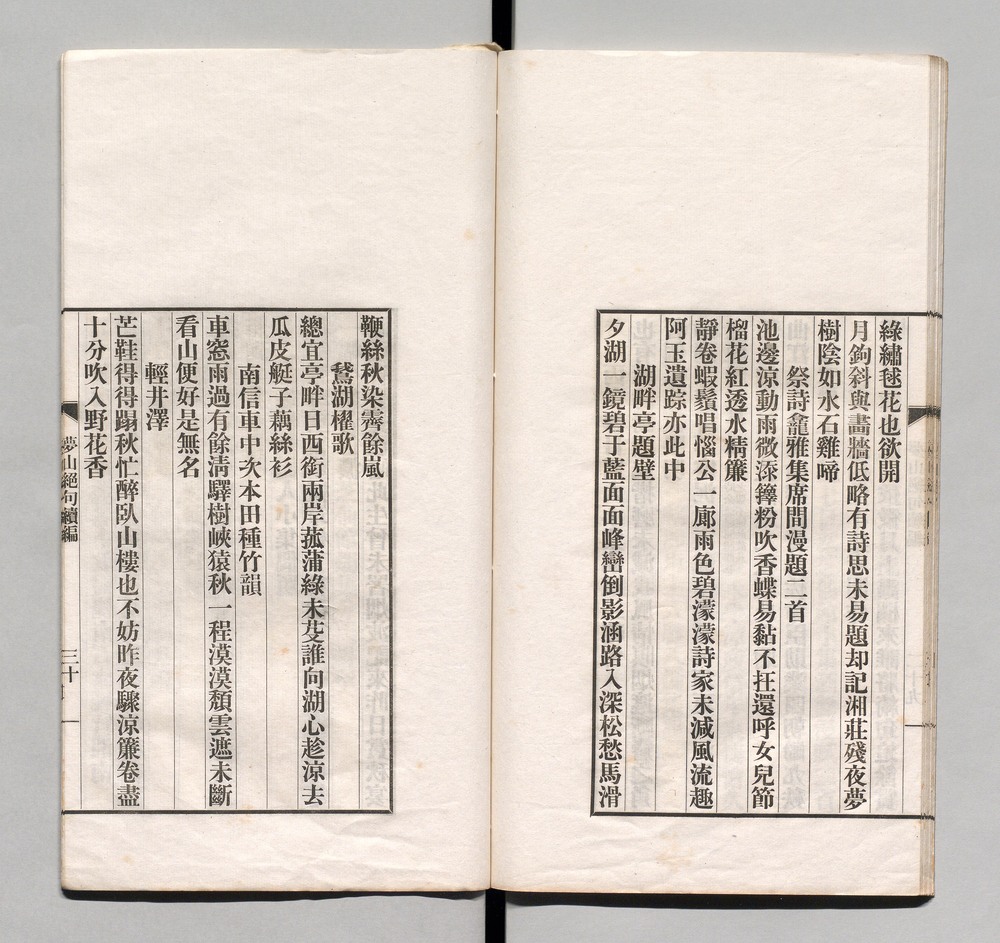 綠繡毬花也欲開
月鉤斜與畵牆低略有詩思未易題却記湘莊殘夜夢
樹陰如水石雞啼
祭詩龕雅集席間漫題二首
池邊涼動雨微添籜粉吹香蝶易黏不抂還呼女兒節
榴花紅透水精簾
靜卷蝦鬚唱惱公一廊雨色碧濛濛詩家未減風流趣
阿玉遺踪亦此中
湖畔亭題壁
夕湖一鏡碧于藍面面峰巒倒影涵路入深松愁馬滑
鞭絲秋染霽餘嵐
鵞湖櫂歌
總宜亭畔日西銜兩岸菰蒲綠未芟誰向湖心趁涼去
瓜皮艇子藕絲衫
南信車中次本田種竹韻
車窓雨過有餘淸驛樹峽猿秋一程漠漠頽雲遮未斷
看山便好是無名
輕井澤
芒鞋得得蹋秋忙醉臥山樓也不妨昨夜驟涼簾卷盡
十分吹入野花香
夢山絕句續編
三十